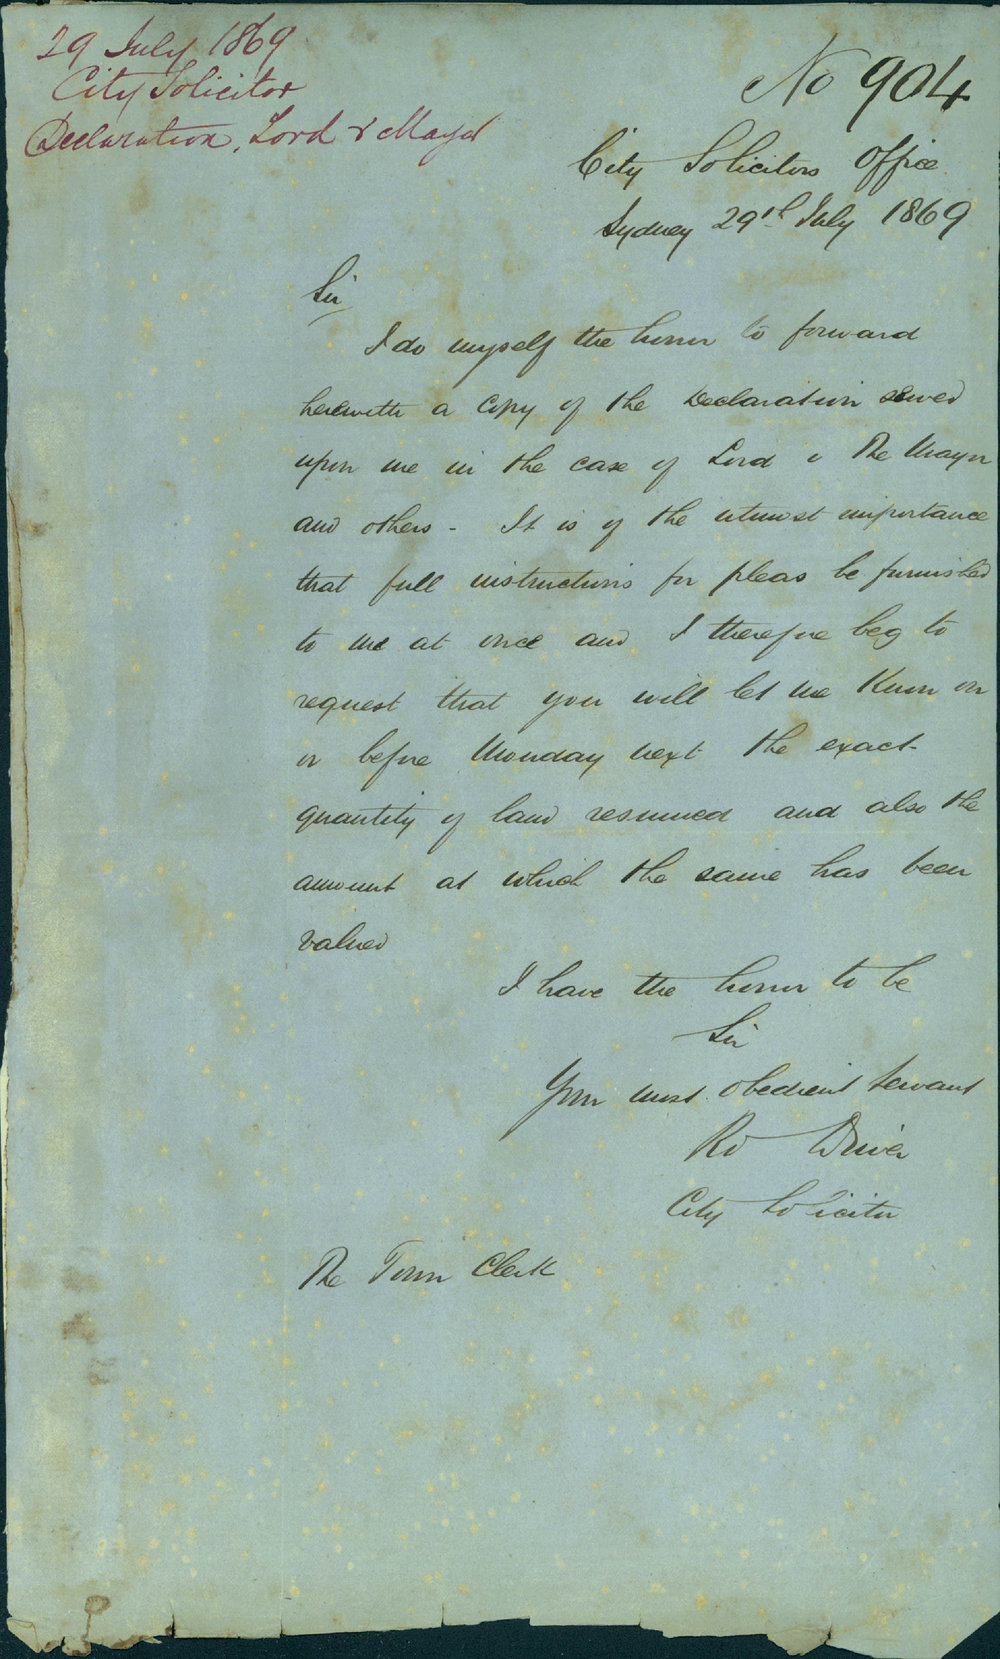 29 July 1869
City Solicitor
Declaration, Lord v Mayor
No 904
City Solicitors Office
Sydney 29th July 1869
Sir,
I do myself the honor to forward
herewith a copy of the Declaration served
upon me in the case of Lord v The Mayor
and others - It is of the utmost importance
that full instructions for pleas be furnished
to me at once and I therefore beg to
request that you will let me Know on
or before Monday next the exact
quantity of land resumed and also the
amount at which the same has been
valued
I have the honor to be
Sir
Your most obedient servant
Rd Driver
City Solicitor
The Town Clerk